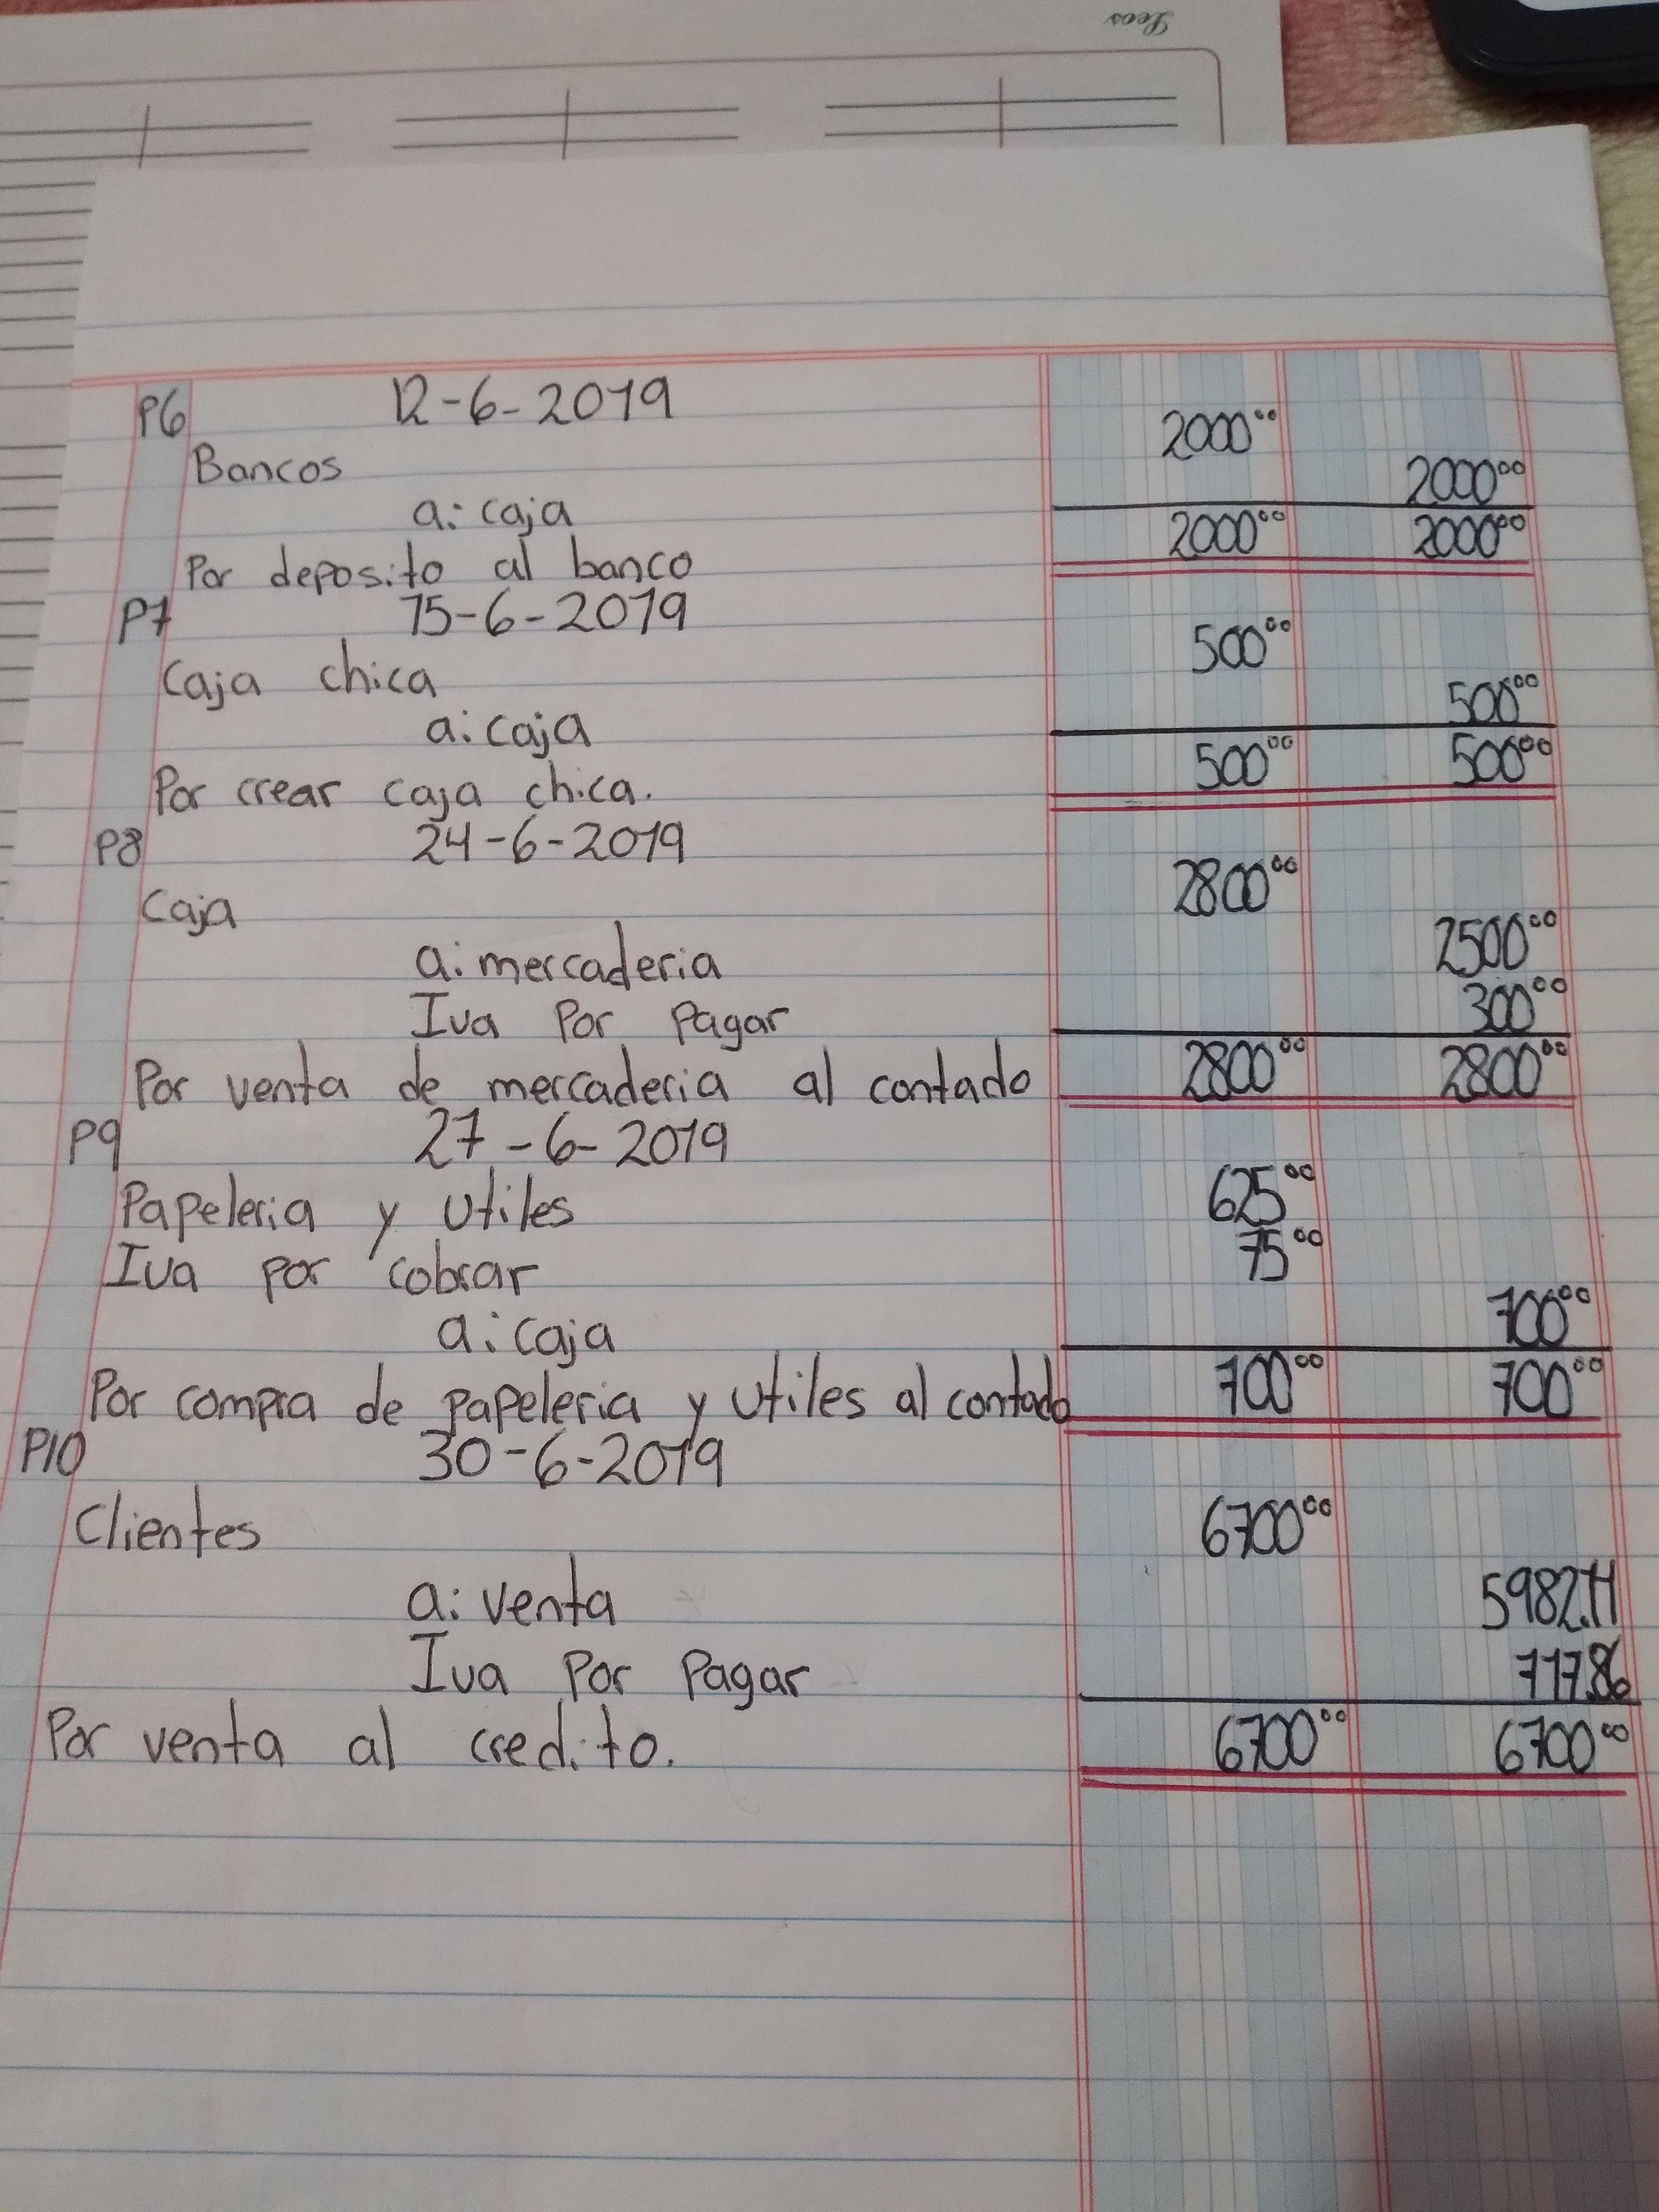 Leos
P6 12-6-2019
Bancos 2000⁰⁰
a: caja 2000⁰⁰
Por deposito al banco 2000⁰⁰ 2000⁰⁰
P7 15-6-2019
Caja chica 500⁰⁰
a: caja 500⁰⁰
Por crear caja chica. 500⁰⁰ 500⁰⁰
P8 24-6-2019
Caja 2800⁰⁰
a: mercaderia 2500⁰⁰
Iva Por Pagar 300⁰⁰
Por venta de mercaderia al contado 2800⁰⁰ 2800⁰⁰
P9 27-6-2019
Papeleria y Utiles 625⁰⁰
Iva por cobrar 75⁰⁰
a: caja 700⁰⁰
Por compra de papeleria y Utiles al contado 700⁰⁰ 700⁰⁰
P10 30-6-2019
Clientes 6700⁰⁰
a: venta 5982.14
Iva Por Pagar 717.86
Por venta al credito. 6700⁰⁰ 6700⁰⁰